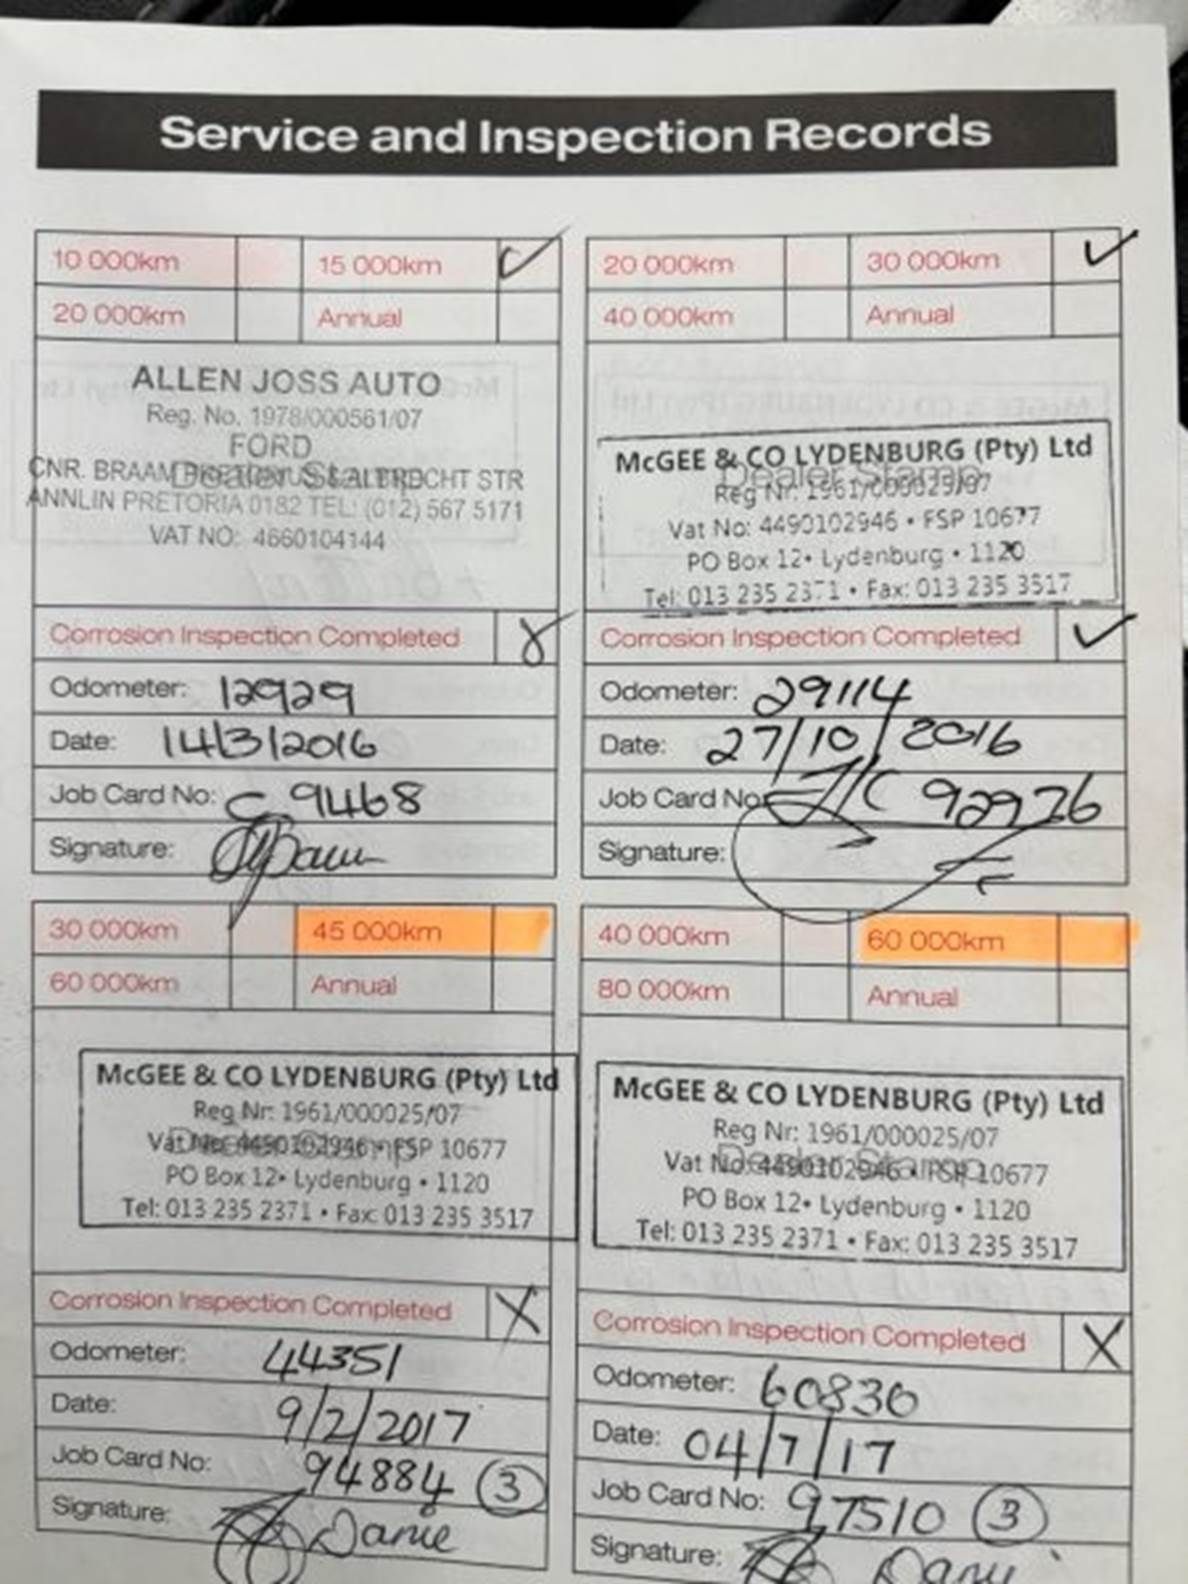 Service and Inspection Records
10 000km 15 000km ✓
20 000km Annual
ALLEN JOSS AUTO
Reg. No. 1978/000561/07
FORD
Dealer Stamp
CNR. BRAAM STR
ANNLIN PRETORIA 0182 TEL: (012) 567 5171
VAT NO: 4660104144
Corrosion Inspection Completed
Odometer: 12929
Date: 14/3/2016
Job Card No: C 9468
Signature:
20 000km 30 000km ✓
40 000km Annual
McGEE & CO LYDENBURG (Pty) Ltd
Dealer Stamp
Reg Nr: 1961/000025/07
Vat No: 4490102946 • FSP 10677
PO Box 12• Lydenburg • 1120
Tel: 013 235 2371 • Fax: 013 235 3517
Corrosion Inspection Completed ✓
Odometer: 29114
Date: 27/10/2016
Job Card No: J/C 92976
Signature:
30 000km 45 000km
60 000km Annual
McGEE & CO LYDENBURG (Pty) Ltd
Reg Nr: 1961/000025/07
Dealer Stamp
Vat No: 4490102946 • FSP 10677
PO Box 12• Lydenburg • 1120
Tel: 013 235 2371 • Fax: 013 235 3517
Corrosion Inspection Completed X
Odometer: 44351
Date: 9/2/2017
Job Card No: 94884 3
Signature: Danie
40 000km 60 000km
80 000km Annual
McGEE & CO LYDENBURG (Pty) Ltd
Reg Nr: 1961/000025/07
Dealer Stamp
Vat No: 4490102946 • FSP 10677
PO Box 12• Lydenburg • 1120
Tel: 013 235 2371 • Fax: 013 235 3517
Corrosion Inspection Completed X
Odometer: 60830
Date: 04/7/17
Job Card No: 97510 3
Signature: